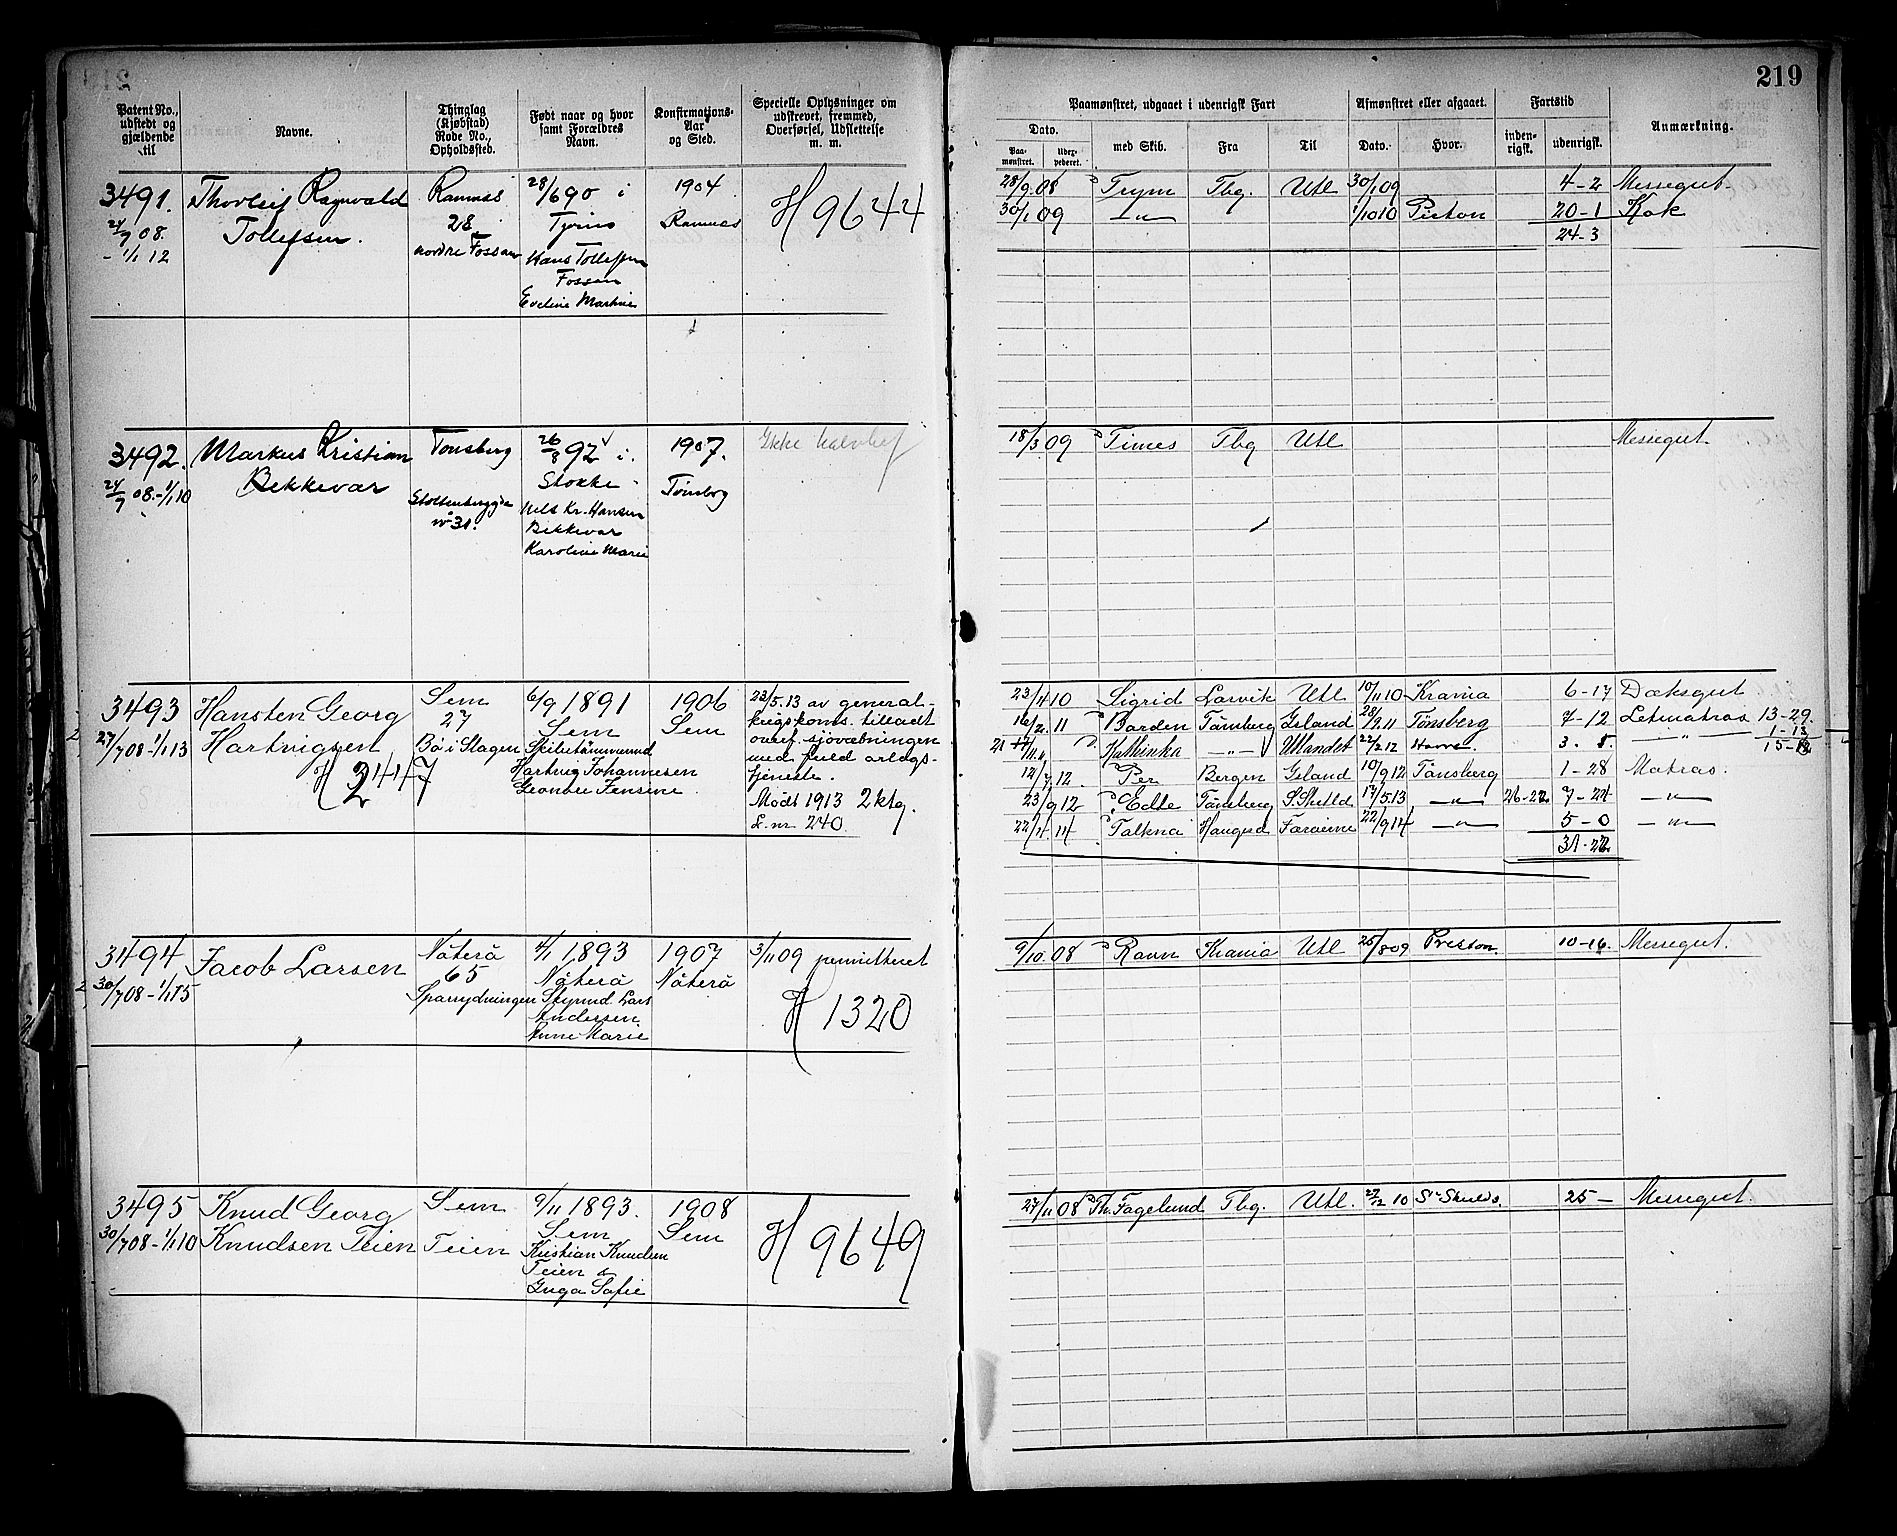 219
Patent No., udstedt og gjældende til
Navne.
Thinglag (Kjøbstad) Rode No., Opholdssted.
Født naar og hvor samt Forældres Navn.
Konfirmations-Aar og Sted.
Specielle Oplysninger om udskrevet, fremmed, Overførsel, Udslettelse m. m.
Paamønstret, udgaaet i udenrigsk Fart
Afmønstret eller afgaaet.
Fartstid
Anmærkning.
Dato.
Paamønstret.
med Skib.
Fra
Til
Dato.
Hvor.
indenrigsk.
udenrigsk.
3491. Thorleif Ragnvald Ramnes 28/6 90 i 1904 H 9644
24/7 08. Tollefsen. 28 Tjømø Ramnes
- 1/1 12 nordre Fossan Hans Tollefsen
Fossan
Eveline Martine
28/9 08 Trym Tbg. Utl 30/1 09 4-2 Messegut
30/1 09 -"- 1/10 10 Picton 20-1 Kok
24-3
3492. Markus Kristian Tønsberg 26/8 92 i 1907. Ikke halvbef
24/7 08.-1/1 10 Bekkevar Stokke Tønsbrg
Stoltenberggn No 31. Nels Kr. Hansen
Bekkevar
Karoline Marie
18/3 09 Times Tbg Utl Messegut
3493 Hansten Georg Sem 6/9 1891 1906 23/5.13 av general-
27/7 08-1/1 13 Hartvigsen 27 Sem Sem krigskoms. tilladt
H 2447 Bø i Slagen Skibstømmermd overf. sjøvæbningen
Hartvig Johannesen med fuld orlogs-
Leonore Jensine. tjeneste.
Mødt 1913 2 ktg.
L. nr. 240
23/4 10 Sigrid Larvik Utl 10/11 10 Krania 6-17 Dæksgut
16/2. 11 Barden Tønsberg Island 28/9.11 Tønsberg 7-12 Letmatros 13-29.
Kathinka -"- Utlandet 22/2 12 Havre. 3. 5. -"- 1-13
15-12
12/7 12. Per Bergen Island 10/9 12 Tønsberg 1-28 Matros.
23/9 12 Edle Tønsberg S. Shetld 17/5.13 -"- 26-22 7-24 -"-
22/4 14 Falkna Haugsd Færøerne 22/9 14 -"- 5-0 -"-
31-22
3494 Jacob Larsen Nøterø 4/1 1893 1907 3/11 09 permitteret
30/7 08-1/1 15 65 Nøterø Nøterø
Sparrydningen Styrmd. Lars H 1320
Andersen
Anne Marie
9/10. 08 Ravn Krania Utl 25/8 09 Preston 10-16. Messegut.
3495 Knud Georg Sem 9/11 1893. 1908 H 9649
30/7 08-1/1 10 Knudsen Teien Teien Sem Sem
Kristian Knudsen
Teien &
Inga Sofie
27/11 08 Th. Fagelund Tbg. Utl. 22/12 10 St Shields. 25 - Messegut.